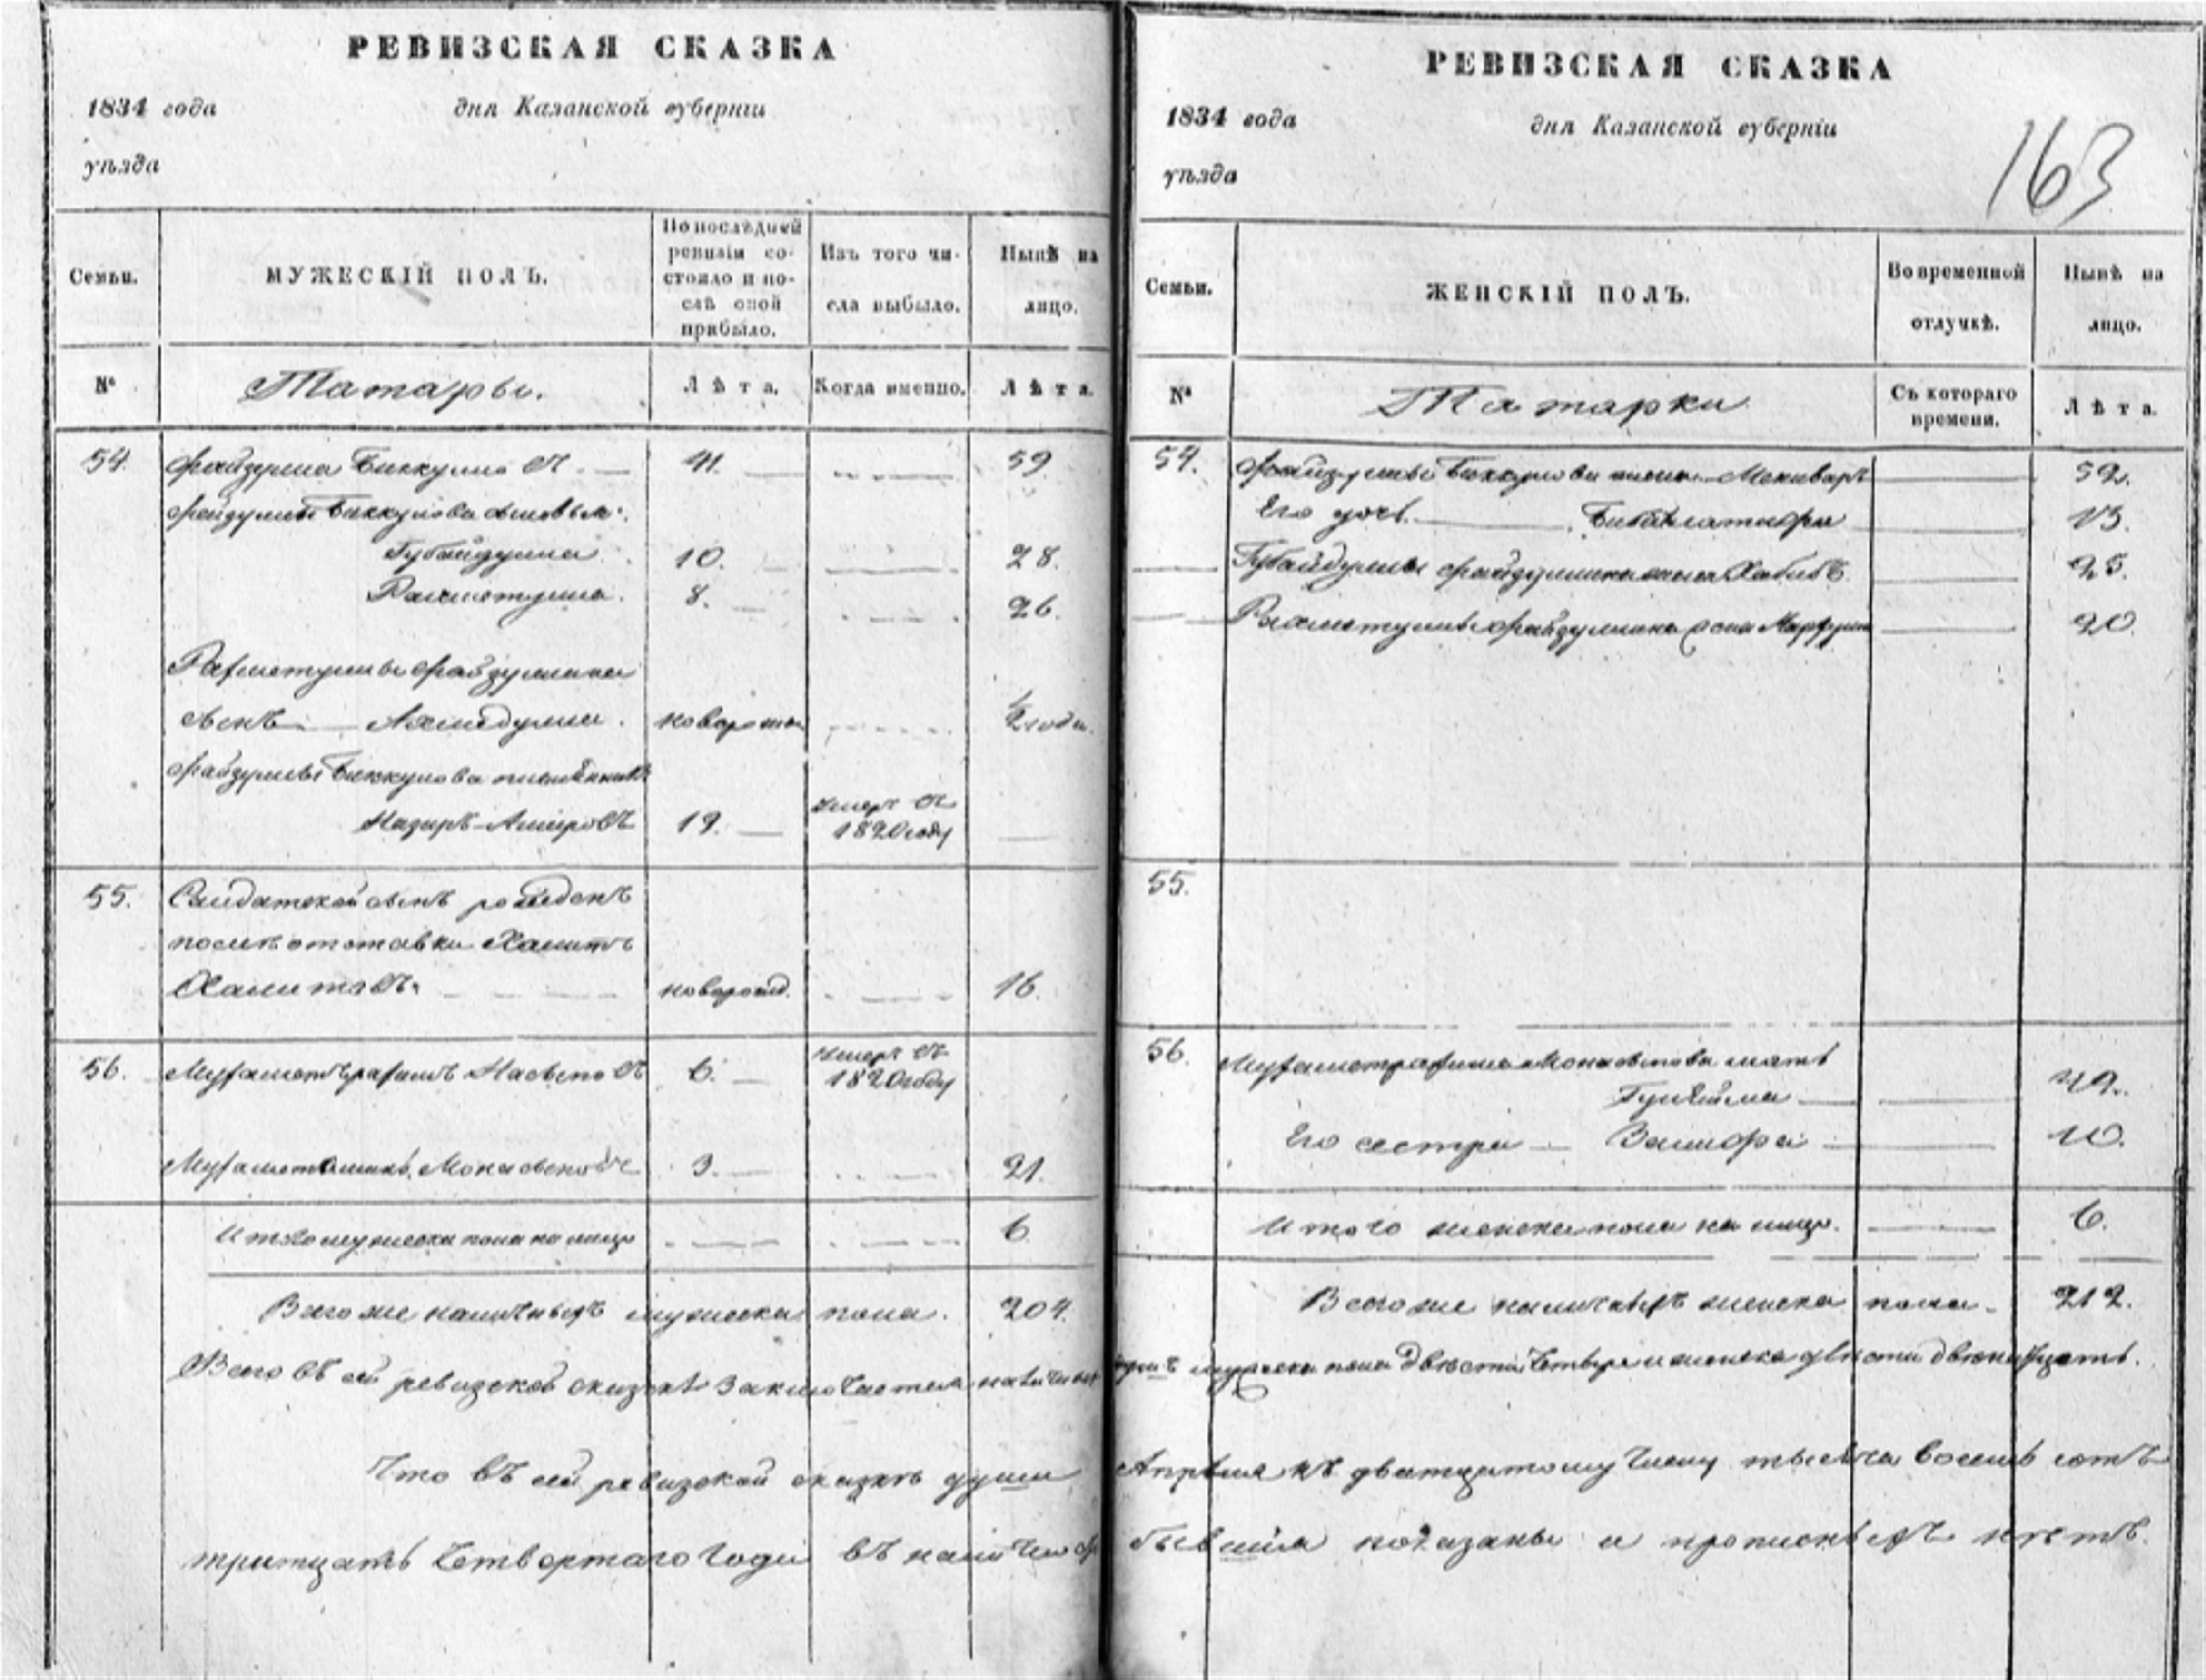 РЕВИЗСКАЯ СКАЗКА
1834 года
дня Казанской губерніи
уѣзда
Семьи.
МУЖЕСКІЙ ПОЛЪ.
По послѣдней ревизіи состояло и послѣ оной прибыло.
Изъ того числа выбыло.
Нынѣ на лицо.
№
Татары.
Лѣта.
Когда именно.
Лѣта.
54. Файзулла Биккуловъ 41. 59
Файзуллы Биккулова сыновья:
Губайдулла 10. 28.
Рахметулла. 8. 26.
Рахметуллы Файзуллина
сынъ Ахмедулла. новорожд ½ года.
Файзуллы Биккулова племянникъ
Назиръ Амировъ 19. умеръ въ 1820 году
55. Салдатской сынъ рожденъ
послѣ отставки Хамитъ
Хамитовъ. новорожд. 16.
56. 6. умеръ въ 1820 году
3. 21.
Итого мужеска пола на лицо 6
Всего же наличныхъ мужеска пола. 204.
Всего въ сей ревизской сказкѣ заключается наличныхъ
Что въ сей ревизской сказкѣ души
тритцать четвертаго года въ
РЕВИЗСКАЯ СКАЗКА
1834 года
дня Казанской губерніи
уѣзда
163
Семьи.
ЖЕНСКІЙ ПОЛЪ.
Во временной отлучкѣ.
Нынѣ на лицо.
№
Татарки
Съ котораго времени.
Лѣта.
54. Файзуллы Биккулова жена 52.
Его дочь 13.
Губайдуллы Файзуллина жена Хабиба 25.
Рахметуллы Файзуллина жена 20.
55.
56. мать
49.
Его сестра 10.
Итого женска пола на лицо. 6.
Всего же наличныхъ женска пола. 212.
душъ мужеска пола двѣсти четыре и женска двѣсти двенатцать.
Апрѣля къ дватцатому числу тысяча восемь сотъ
показаны и прописныхъ нѣтъ.